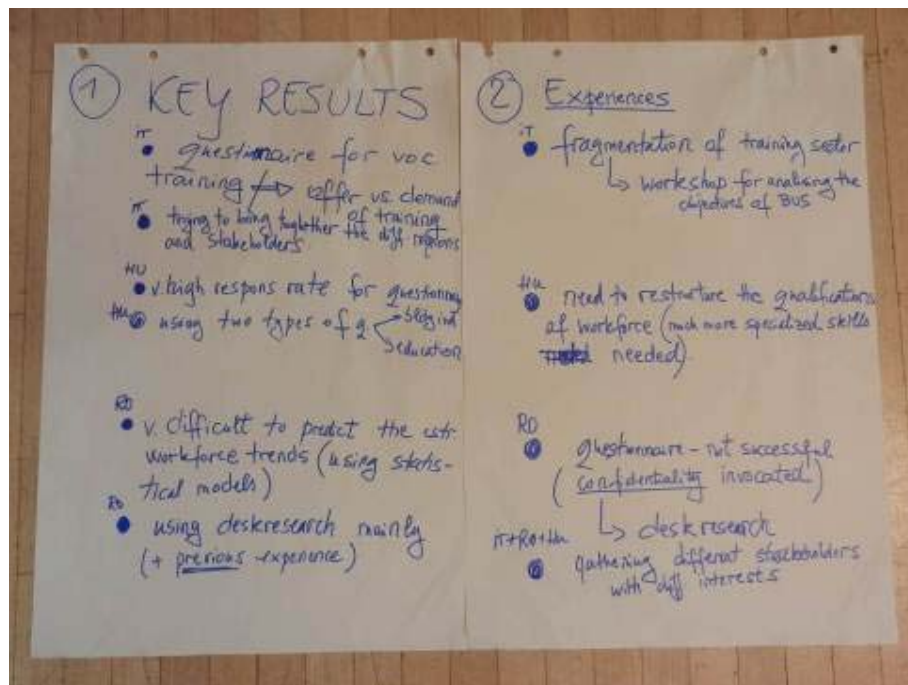 1 KEY RESULTS
IT
• questionnaire for voc
training → offer vs. demand
of training
IT
• trying to bring together the diff regions
and stakeholders
HU
• v. high respons rate for
HU
• using two types of q
education
RO
• v. difficult to predict the
workforce trends (using statis-
tical models)
RO
• using deskresearch mainly
(+ previous experience)
2 Experiences
IT
• fragmentation of training sector
↳ workshop for analising the
objectives of BUS
HU
• need to restructure the
of workforce (much more specialized skills
needed)
RO
• questionnaire - not successful
(confidentiality invocated)
↳ deskresearch
IT+RO+HU
• gathering different
with diff interests